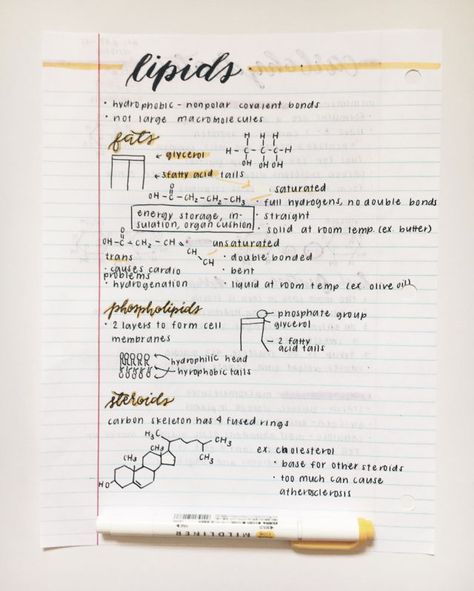 lipids
• hydrophobic - nonpolar covalent bonds
• not large macromolecules
fats
← glycerol
← fatty acid tails
H H H
H-C-C-C-H
OH OH OH
O
OH-C-CH₂-CH₂-CH₃
• saturated
full hydrogens, no double bonds
• straight
• solid at room temp. (ex. butter)
energy storage, in-
sulation, organ cushion
O
OH-C-CH₂-CH
CH
CH
unsaturated
• double bonded
• bent
• liquid at room temp (ex. olive oil)
trans
• causes cardio
problems
• hydrogenation
phospholipids
• 2 layers to form cell
membranes
phosphate group
glycerol
2 fatty
acid tails
hydrophilic head
hyrophobic tails
steroids
carbon skeleton has 4 fused rings
H₃C
CH₃
CH₃
CH₃
CH₃
HO
ex. cholesterol
• base for other steroids
• too much can cause
atherosclerosis
MILDLINER